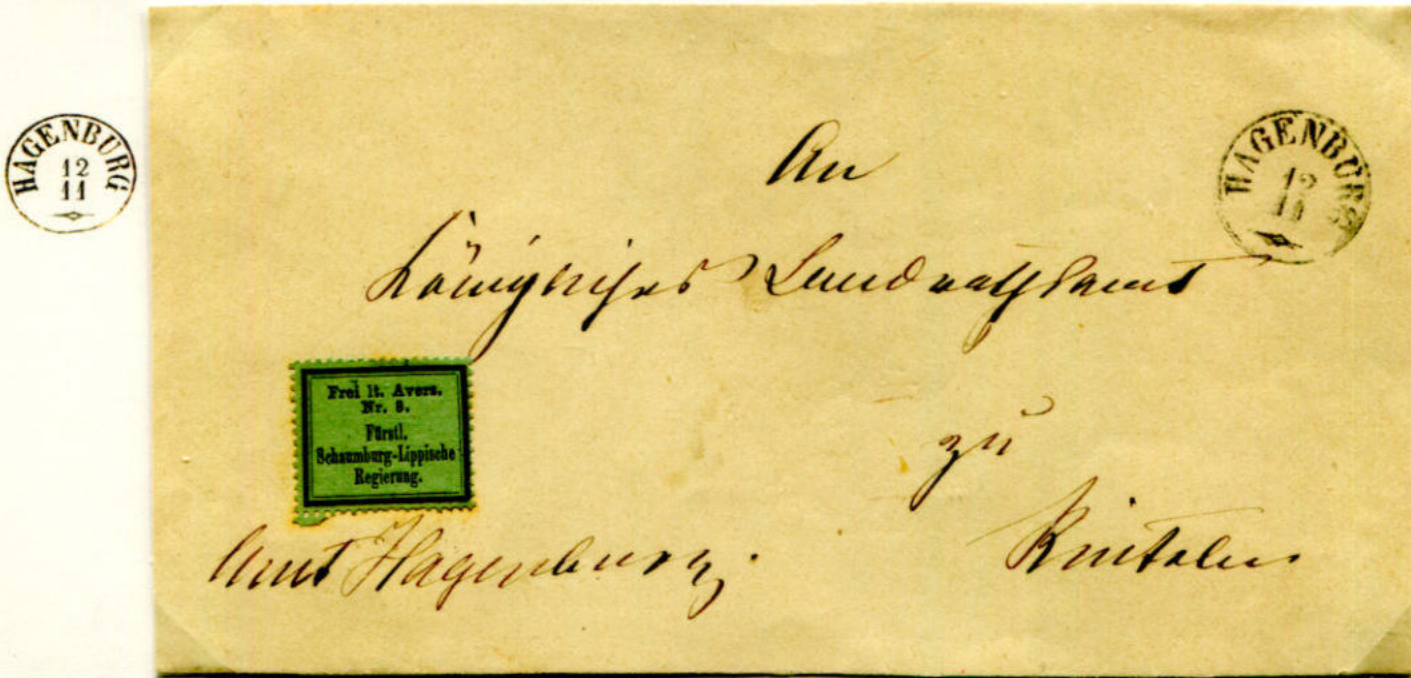 HAGENBURG
12
11
HAGENBURG
12
11
An
Königliches Landrathsamt
zu
Rinteln
Frei lt. Avers.
Nr. 8.
Fürstl.
Schaumburg-Lippische
Regierung.
Amt Hagenburg.